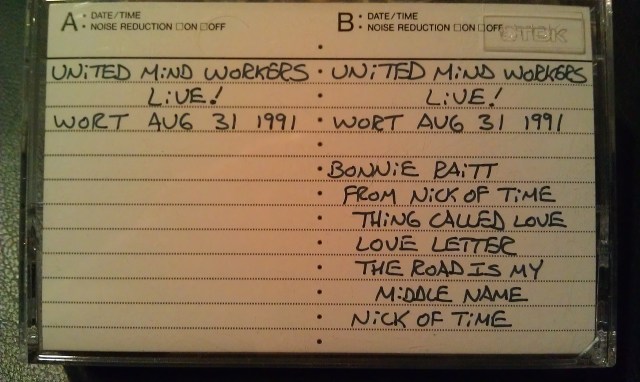 A: DATE/TIME
NOISE REDUCTION □ON □OFF
B: DATE/TIME
NOISE REDUCTION □ON □OFF
TDK
UNiTED MiND WORKERS
LiVE!
WORT AUG 31 1991
UNiTED MiND WORKERS
LiVE!
WORT AUG 31 1991
BONNiE RAiTT
FROM NiCK OF TiME
THiNG CALLED LOVE
LOVE LETTER
THE ROAD IS MY
MiDDLE NAME
NiCK OF TiME